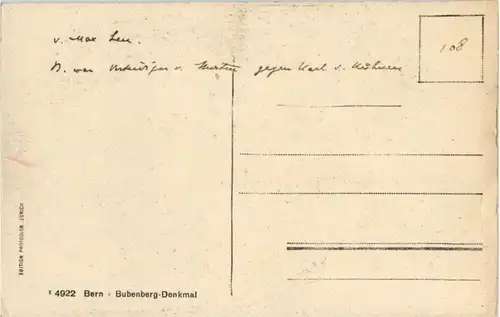 v. Max Leu.
108
B. war Verteidiger v. Murten gegen Karl d. Kühnen
EDITION PHOTOGLOB, ZÜRICH
4922 Bern - Bubenberg-Denkmal